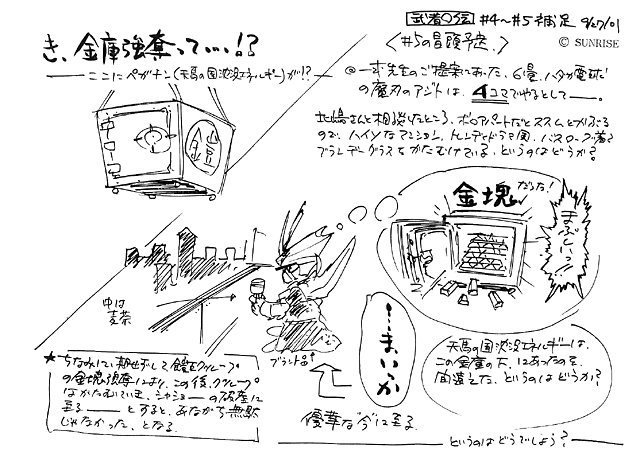 武者○伝 #4〜#5補足 9/27/01
© SUNRISE
き、金庫強奪って…!?
ここにペガナン(天馬の国波動エネルギー)が!?
<#5の冒頭予定.>
一本先生のご提案にあった、6畳、ハダカ電球
の魔刃のアジトは、4コマでやるとして――。
北嶋さんと相談したところ、ボロアパートだとススムとかぶる
ので、ハイソなマンション、トレンディドラマ風、バスローブ着て
ブランデーグラスをかたむけている、というのはどうか?
金
金塊だった!
まぶしいっ
中は
麦茶
ブランド品
……まいっか
優雅な“今”に至る
★ちなみに、期せずして鏡グループ
の金塊強奪により、この後、グループ
はかたむいていき、シャショーの破産に
至る――とすると、あながち無駄
じゃなかった、となる.
天馬の国波動エネルギーは、
この金庫の下、にあったのを、
間違えた、というのはどうか?
というのはどうでしょう?